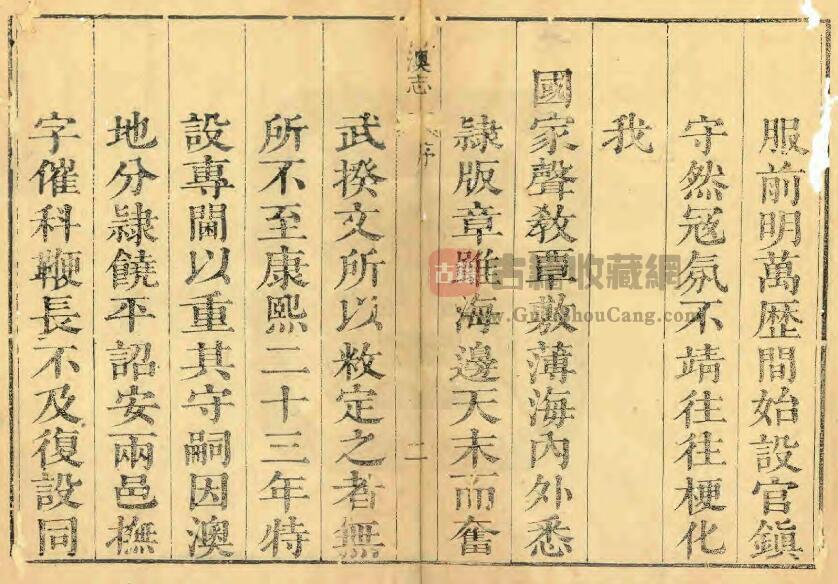 服前明萬歴間始設官鎮
守然冦氛不靖往往梗化
我
國家聲敎覃敷薄海内外悉
隷版章雖海邊天末而奮
澳志
序
二
武揆文所以敉定之者無
所不至康熙二十三年特
設專閫以重其守嗣因澳
地分隷饒平詔安兩邑撫
字催科鞭長不及復設同
古籍
古籍收藏網
www.GuJiShouCang.com